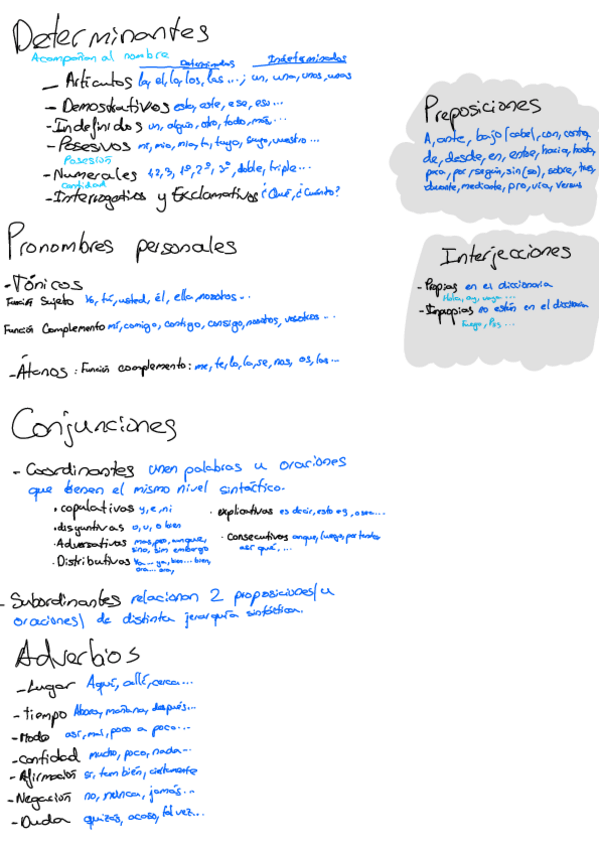 Determinantes
Acompañan al nombre
Determinados Indeterminados
- Artículos la, el, lo, los, las ...; un, una, unos, unas
- Demostrativos esta, este, ese, eso...
- Indefinidos un, algún, otro, todo, más...
- Posesivos mi, mio, mia, tu, tuyo, suyo, nuestro...
Posesión
- Numerales 1, 2, 3, 1º, 2º, 3º, doble, triple...
Cantidad
- Interrogativos y Exclamativos ¿Qué, ¿Cuánto?
Preposiciones
A, ante, bajo, cabe, con, contra,
de, desde, en, entre, hacia, hasta,
para, por, según, sin, so, sobre, tras,
durante, mediante, pro, vía, versus
Pronombres personales
- Tónicos
Función Sujeto Yo, tú, usted, él, ella, nosotros...
Función Complemento mí, comigo, contigo, consigo, nosotros, vosotros...
- Átonos: Función complemento: me, te, lo, la, se, nos, os, los...
Interjecciones
- Propias en el diccionario
Hola, ay, vaya...
- Impropias no están en el diccionario
Fuego,
Conjunciones
- Coordinantes unen palabras u oraciones
que tienen el mismo nivel sintáctico.
• copulativas y, e, ni
• disyuntivas o, u, o bien
• Adversativas mas, pero, aunque,
sino, sin embargo
• Distributivas ya... ya, bien... bien,
ora... ora,
• explicativas es decir, esto es, o sea...
• Consecutivos luego, por tanto
así qué, ...
- Subordinantes relacionan 2 proposiciones/u
oraciones/ de distinta jerarquía sintáctica.
Adverbios
- Lugar Aquí, allí, cerca...
- tiempo Ahora, mañana, después...
- Modo así, mal, poco a poco...
- cantidad mucho, poco, nada...
- Afirmación si, tambien, ciertamente
- Negación no, nunca, jamás...
- Duda quizás, acaso, tal vez...